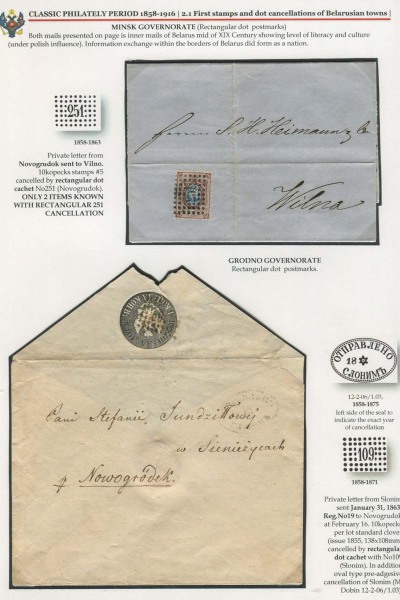 CLASSIC PHILATELY PERIOD 1858-1916 | 2.1 First stamps and dot cancellations of Belarusian towns |
MINSK GOVERNORATE (Rectangular dot postmarks)
Both mails presented on page is inner mails of Belarus mid of XIX Century showing level of literacy and culture
(under polish influence). Information exchange within the borders of Belarus did form as a nation.
251
1858-1863
Private letter from
Novogrudok sent to Vilno.
10kopecks stamps #5
cancelled by rectangular dot
cachet No251 (Novogrudok).
ONLY 2 ITEMS KNOWN
WITH RECTANGULAR 251
CANCELLATION
S. H. Heimann & Co
Wilna
GRODNO GOVERNORATE
Rectangular dot postmarks.
ОТПРАВЛЕНО
18
СЛОНИМЪ
12-2-06/1.03,
1858-1875
left side of the seal to
indicate the exact year
of cancellation
109
1858-1871
Private letter from Slonim
sent January 31, 1863
Reg.No19 to Novogrudok
at February 16. 10kopecks
per lot standard clove
(issue 1855, 138x108mm)
cancelled by rectangular
dot cachet with No109
(Slonim). In addition
oval type pre-adgesive
cancellation of Slonim (M.
Dobin 12-2-06/1.03)
Pani Stefanii
w Sieniężycach
p Nowogródek.